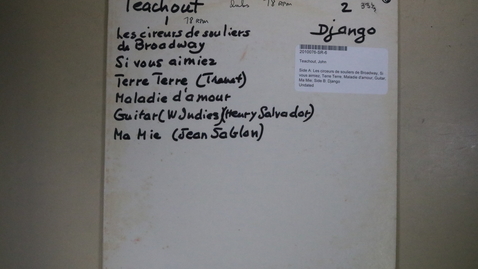 Teachout
1 78 RPM
78 RPM
2 33⅓
Les cireurs de souliers
de Broadway
Django
Si vous aimiez
Terre Terre (Transt)
Maladie d'amour
Guitar (W Indies) (Henry Salvador)
Ma Mie (Jean Sablon)
Teachout, John
Side A: Les cireurs de souliers de Broadway, Si
vous aimiez, Terre Terre, Maladie d'amour, Guitar
Ma Mie, Side B: Django